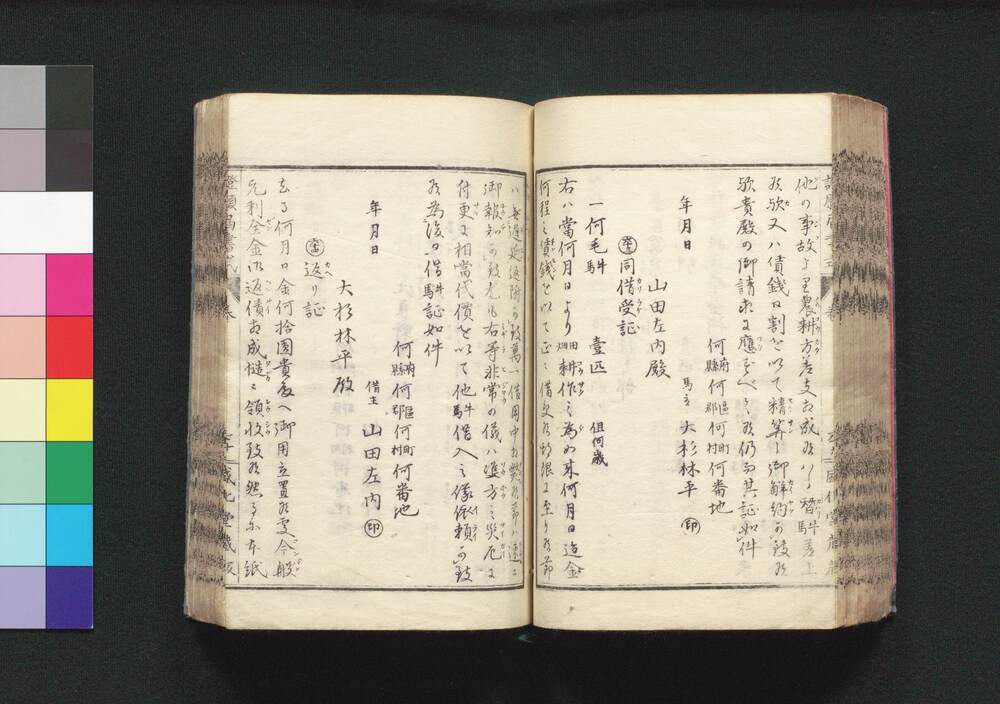 他の事故より農耕方差支相成候ハヽ替牛馬差上
候歟又ハ債銭日割を以て精算し御解約可致候
歟貴殿の御請求に應ずべく候仍而其証如件
何府縣何區郡何町村何番地
年月日 馬主 大杉林平 ㊞
山田左内殿
同借受証
一何毛牛馬 壹匹 但何歳
右ハ當何月日より田畑耕作之為め来何月日迄金
何程之債銭を以て正に借受候期限に至り候節
ハ無遅延返附可致萬一借用中
御報知可致尤も右等非常の儀ハ雙方之災厄に
付更に相當代價を以て他牛馬借入之儀依頼可致
候為後日借牛馬証如件
何府縣何區郡何町村何番地
年月日 借主 山田左内 ㊞
大杉林平殿
返り証
去る何月日金何拾圓貴殿へ御用立置候処今般
元利全金御返償相成慥に領收致候然る